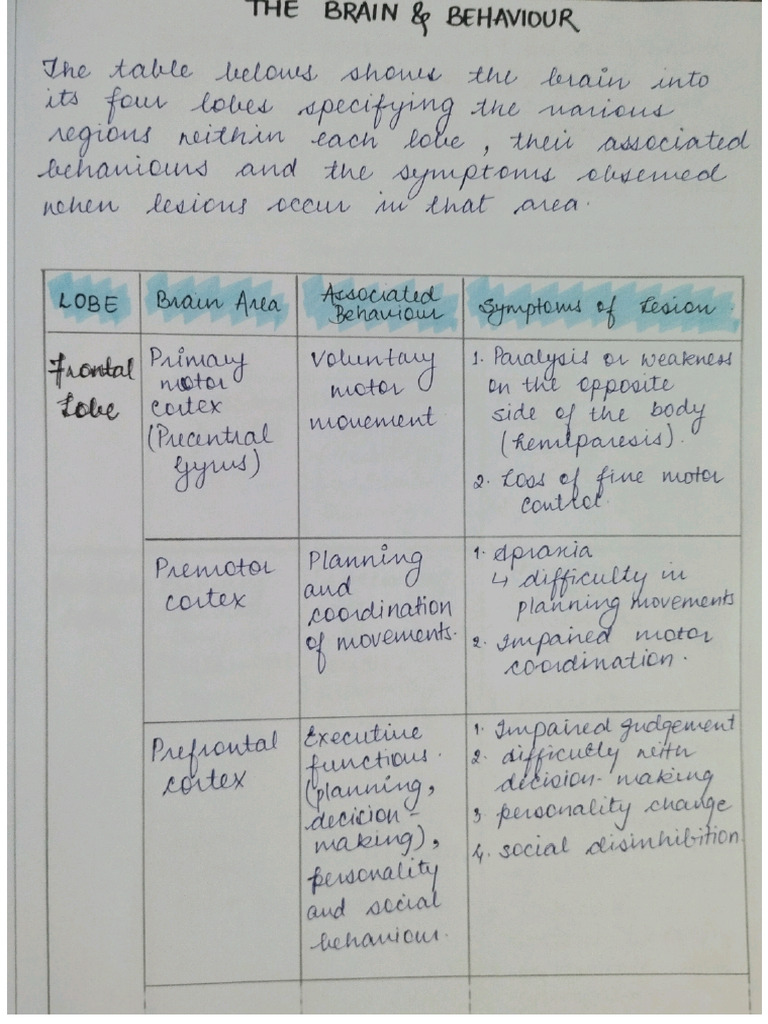 THE BRAIN & BEHAVIOUR
The table belows shows the brain into
its four lobes specifying the various
regions within each lobe, their associated
behaviours and the symptoms observed
when lesions occur in that area.
LOBE
Brain Area
Associated
Behaviour
Symptoms of Lesion
Frontal
Lobe
Primary
motor
cortex
(Precentral
Gyrus)
Voluntary
motor
movement
1. Paralysis or weakness
on the opposite
side of the body
(hemiparesis).
2. Loss of fine motor
control.
Premotor
cortex
Planning
and
coordination
of movements.
1. Apraxia
↳ difficulty in
planning movements
2. Impaired motor
coordination.
Prefrontal
cortex
Executive
functions.
(planning,
decicion-
making),
personality
and social
behaviour.
1. Impaired judgement
2. difficulty with
decision-making
3 personality change
4. social disinhibition.